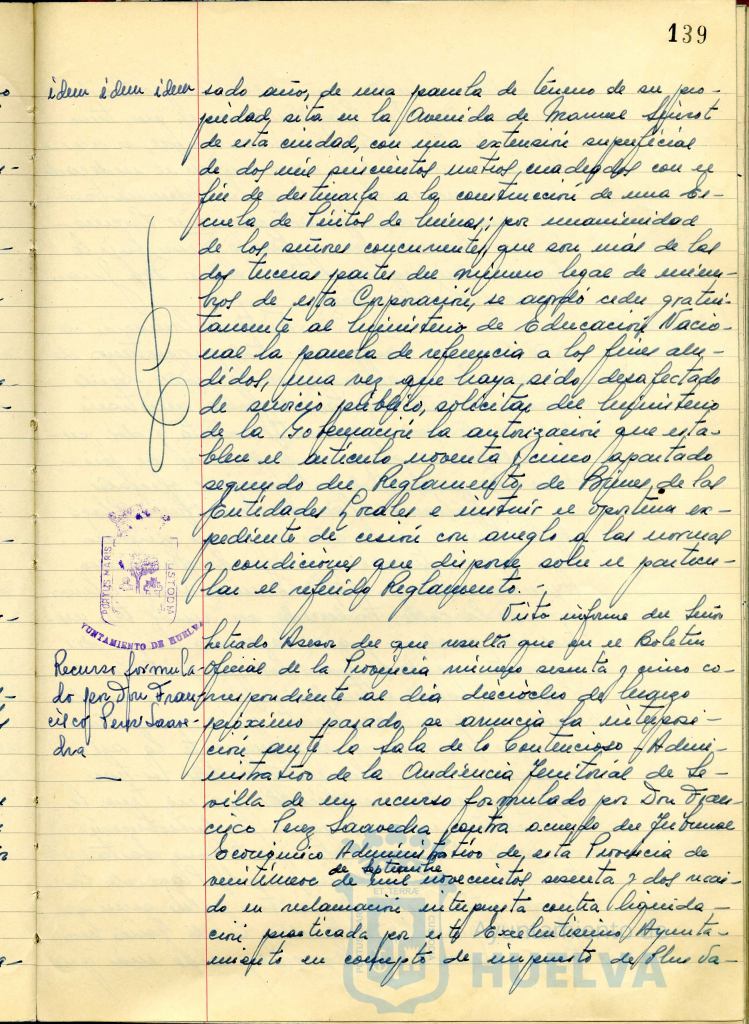 139
idem idem idem
sado año, de una parcela de terreno de su pro-
piedad, sita en la Avenida de Manuel Siurot
de esta ciudad, con una extensión superficial
de dos mil seiscientos metros cuadrados con el
fin de destinarla a la construcción de una Es-
cuela de Peritos de Minas; por unanimidad
de los señores concurrentes, que son más de las
dos terceras partes del número legal de miem-
bros de esta Corporación, se acordó ceder gratui-
tamente al Ministerio de Educación Nacio-
nal la parcela de referencia a los fines alu-
didos, una vez que haya sido desafectado
de servicio público, solicitar del Ministerio
de la Gobernación la autorización que esta-
blece el artículo noventa y cinco apartado
segundo del Reglamento de Bienes de las
Entidades Locales e instruir el oportuno ex-
pediente de cesión con arreglo a las normas
y condiciones que dispone sobre el particu-
lar el referido Reglamento.-
PORTUS MARIS
CUSTODIA
AYUNTAMIENTO DE HUELVA
Recurso formula-
do por Don Fran-
cisco Perez Saave-
dra
Visto informe del Señor
Letrado Asesor del que resulta que en el Boletín
Oficial de la Provincia número sesenta y cinco co-
rrespondiente al día dieciocho de Marzo
próximo pasado, se anuncia la interposi-
ción ante la Sala de lo Contencioso-Admi-
nistrativo de la Audiencia Territorial de Se-
villa de un recurso formulado por Don Fran-
cisco Perez Saavedra contra acuerdo del Tribunal
Económico Administrativo de esta Provincia de
de septiembre
veintinueve de mil novecientos sesenta y dos recaí-
do en reclamación interpuesta contra liquida-
ción practicada por este Excelentísimo Ayunta-
miento en concepto de impuesto de Plus Va-
HUELVA